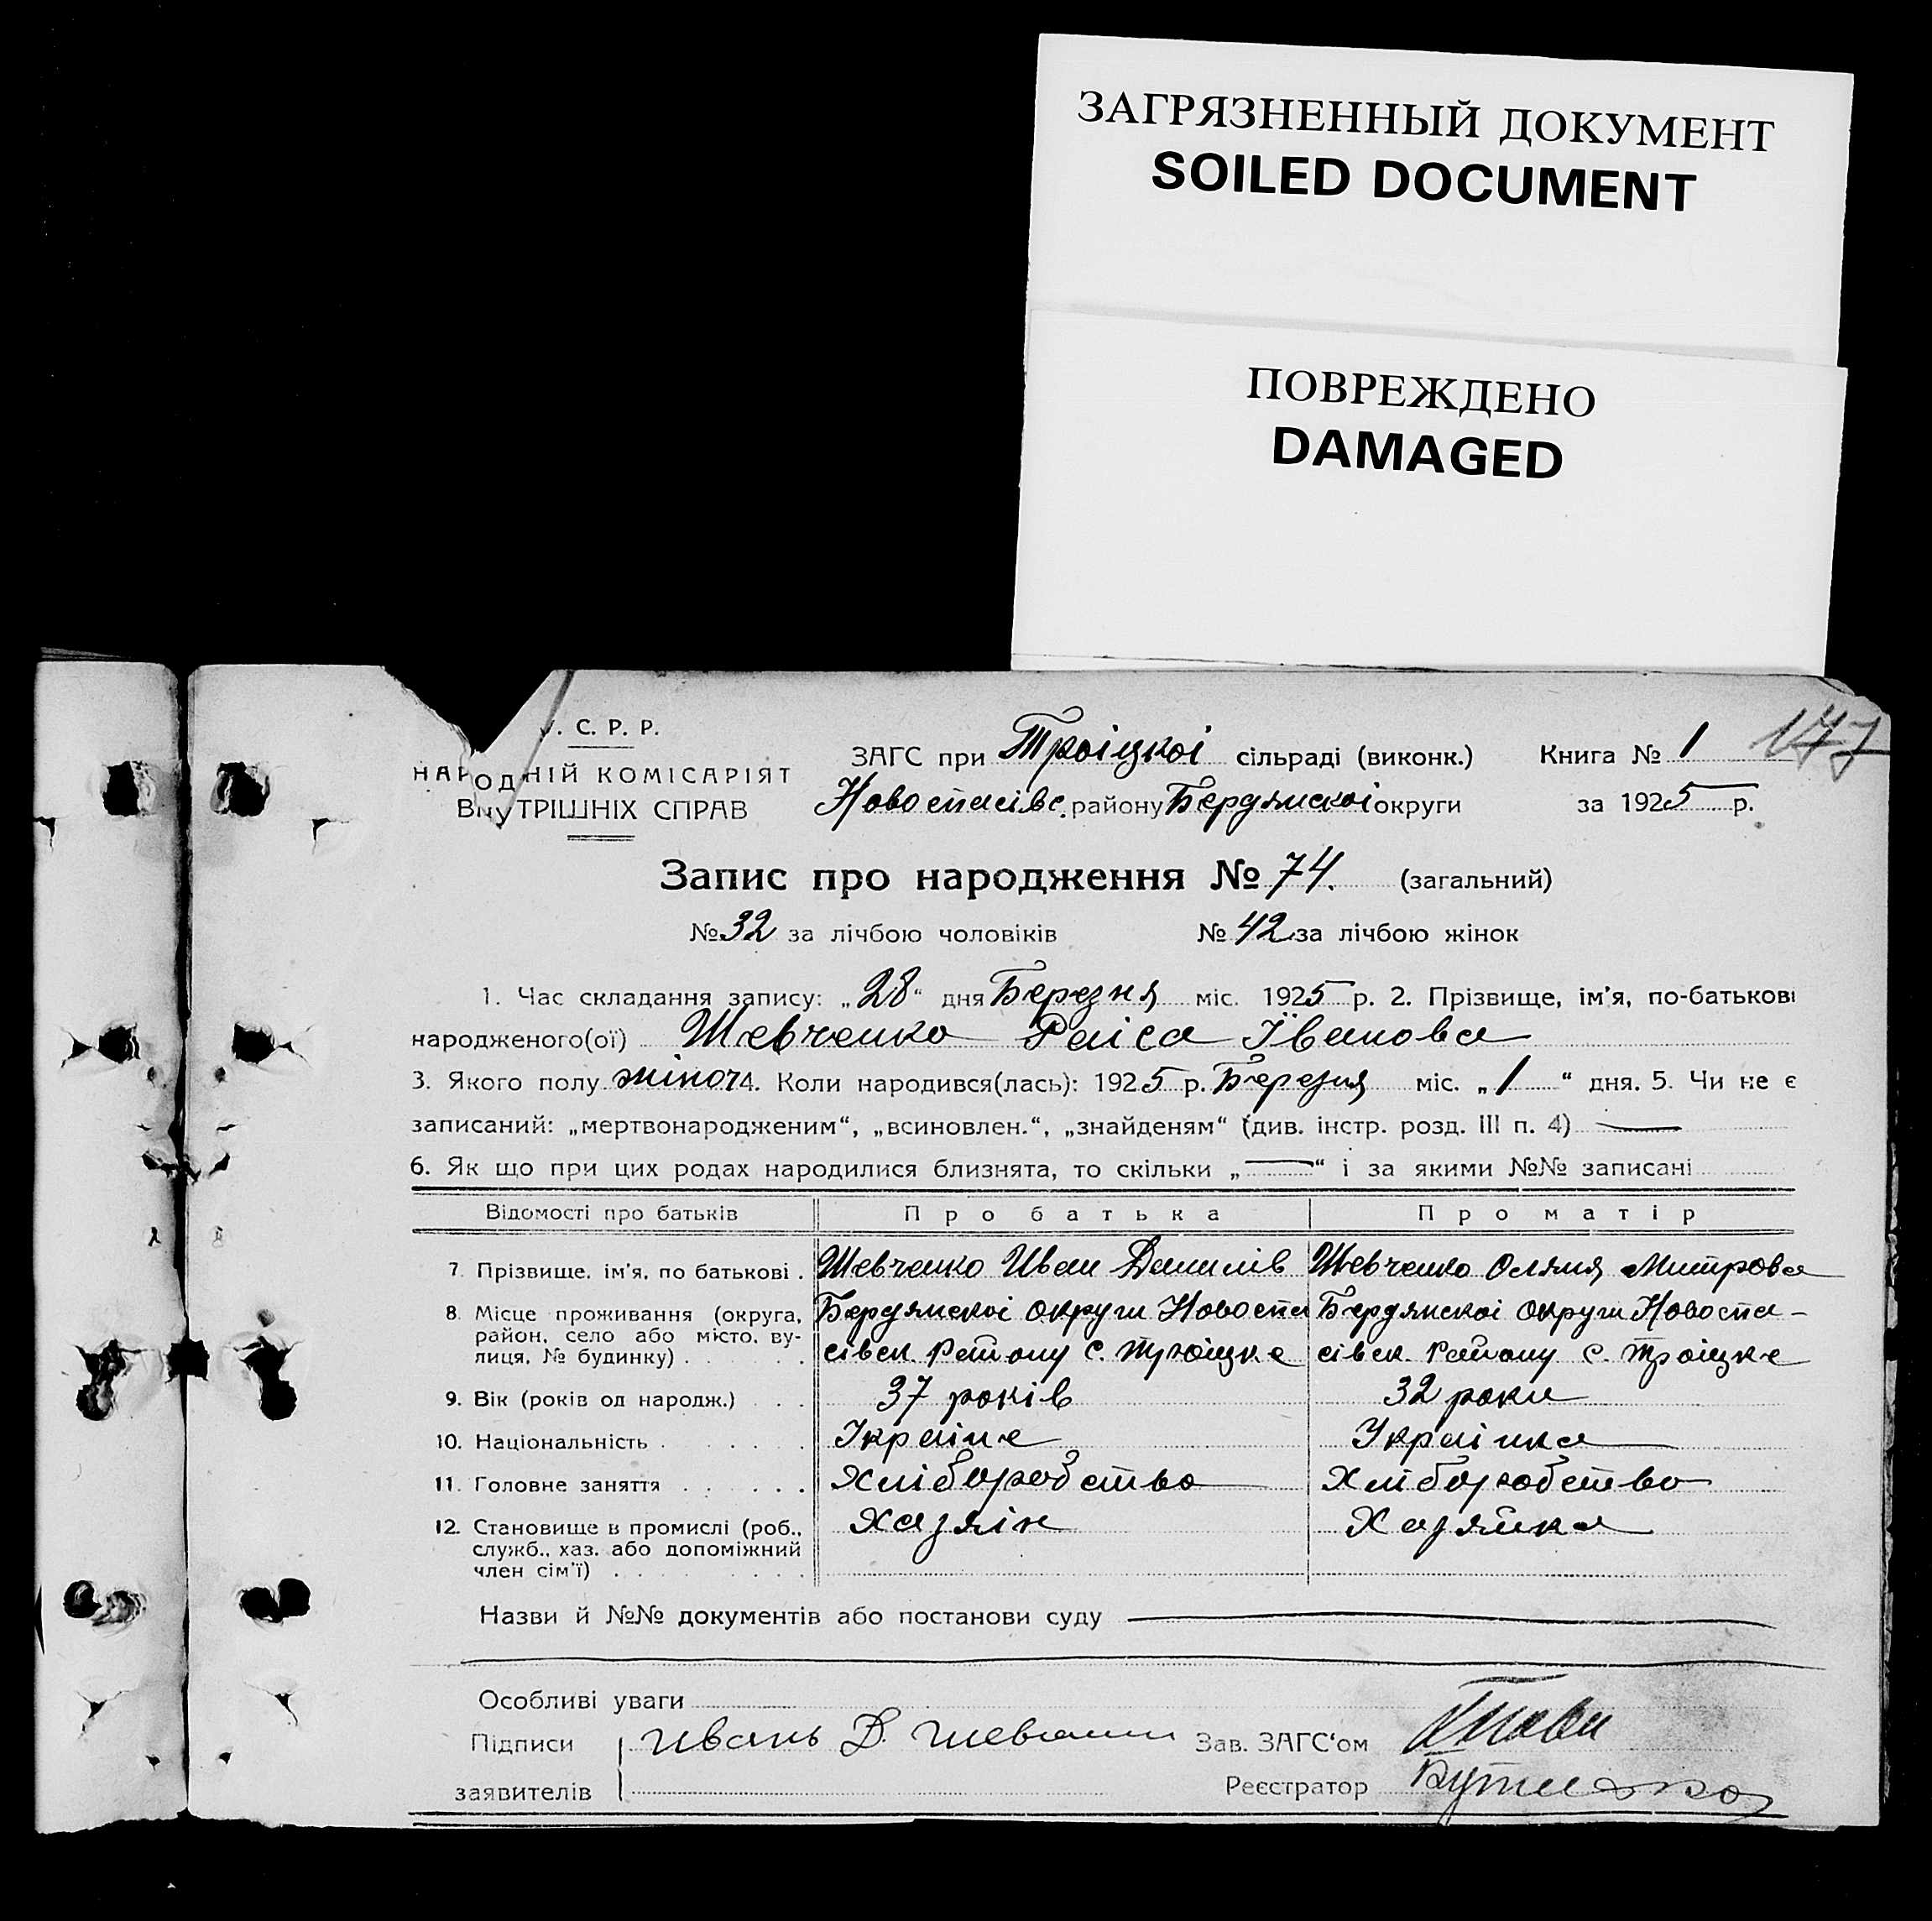 ЗАГРЯЗНЕННЫЙ ДОКУМЕНТ
SOILED DOCUMENT
ПОВРЕЖДЕНО
DAMAGED
177
. С. Р. Р.
НАРОДНІЙ КОМІСАРІЯТ
ВНУТРІШНІХ СПРАВ
ЗАГС при Троіцкоі сільраді (виконк.) Книга № 1
Новоспасівс. району Бердямскоі округи за 1925 р.
Запис про народження № 74. (загальний)
№ 32 за лічбою чоловіків № 42 за лічбою жінок
1. Час складання запису: „28“ дня Березня міс. 1925 р. 2. Прізвище, ім'я, по-батькові
народженого(ої) Шевченко Раіса Івановa
3. Якого полу жіноч 4. Коли народився(лась): 1925 р. Березня міс. „1“ дня. 5. Чи не є
записаний: „мертвонародженим“, „всиновлен.“, „знайденям“ (див. інстр. розд. III п. 4) —
6. Як що при цих родах народилися близнята, то скільки „—“ і за якими №№ записані
Відомості про батьків Про батька Про матір
7. Прізвище, ім'я, по батькові . Шевченко Иван Данилів Шевченко Оляня Митрова
8. Місце проживання (округа, район, село або місто, вулиця, № будинку) . . . Бердямскоі округи Новоспа Бердямскоі округи Новоспа-
сівск. Району с. Троіцке сівск. Району с. Троіцке
9. Вік (років од народж.) . . . 37 років 32 роки
10. Національність . . . . . Украіне Украінка
11. Головне заняття . . . . . . Хліборобство Хліборобство
12. Становище в промислі (роб., служб., хаз. або допоміжний член сім'ї) . . . . . . . Хазяін Хазяйка
Назви й №№ документів або постанови суду
Особливі уваги
Підписи Ивань Д. Зав. ЗАГС‘ом
заявителів Реєстратор